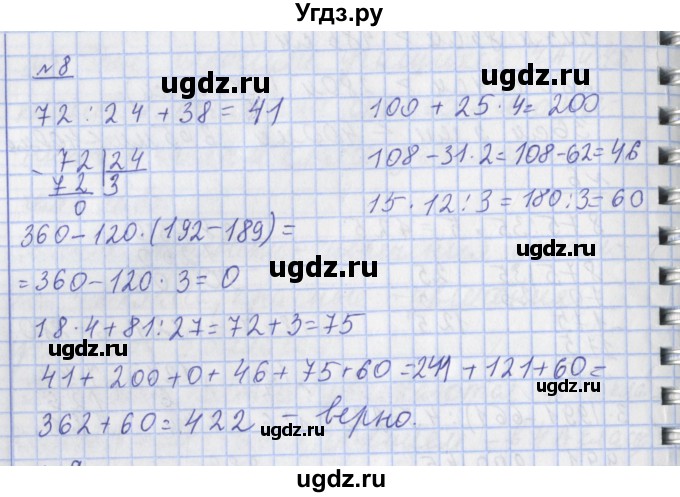 Угдз.ру
№ 8
72 : 24 + 38 = 41
72 | 24
72 3
0
100 + 25 · 4 = 200
108 - 31 · 2 = 108 - 62 = 46
15 · 12 : 3 = 180 : 3 = 60
360 - 120 · (192 - 189) =
= 360 - 120 · 3 = 0
18 · 4 + 81 : 27 = 72 + 3 = 75
41 + 200 + 0 + 46 + 75 + 60 = 241 + 121 + 60 =
362 + 60 = 422 - верно.
ugdz.ru
ugdz.ru
ugdz.ru
ugdz.ru
ugdz.ru
ugdz.ru
ugdz.ru
ugdz.ru